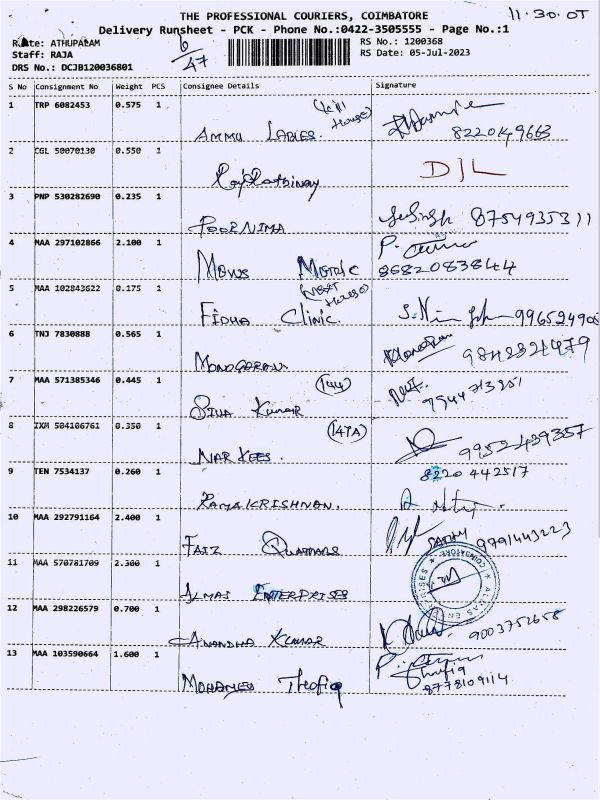 THE PROFESSIONAL COURIERS, COIMBATORE
11.30.07
Delivery Runsheet - PCK - Phone No.:0422-3505555 - Page No.:1
Route: ATHUPALAM 6/47 RS No.: 1200368
Staff: RAJA RS Date: 05-Jul-2023
DRS No.: DCJB120036801
S No Consignment No Weight PCS Consignee Details Signature
1 TRP 6082453 0.575 1
House)
AMMU LADIES. 8220149663
2 CGL 50070130 0.550 1
DJL
3 PNP 530282690 0.235 1
POORNIMA 8754935311
4 MAA 297102866 2.100 1
MOWS 8682083844
5 MAA 102843622 0.175 1
(NEXT House)
FIDHA CLINIC.
6 TNJ 7830888 0.565 1
MONOGARAN. 9843321479
7 MAA 571385346 0.445 1 (144)
SIVA KUMAR
8 IXM 504106761 0.350 1 (147A)
NARKEES. 9952439357
9 TEN 7534137 0.260 1 8220442517
RAMAKRISHNAN.
10 MAA 292791164 2.400 1
FAIZ 9791443223
11 MAA 570781709 2.300 1
ALMAS ENTERPRISES
COIMBATORE ALMAS
12 MAA 298226579 0.700 1
ANANDHA KUMAR 9003752658
13 MAA 103590664 1.600 1
MOHAMED Thofiq 8778109114